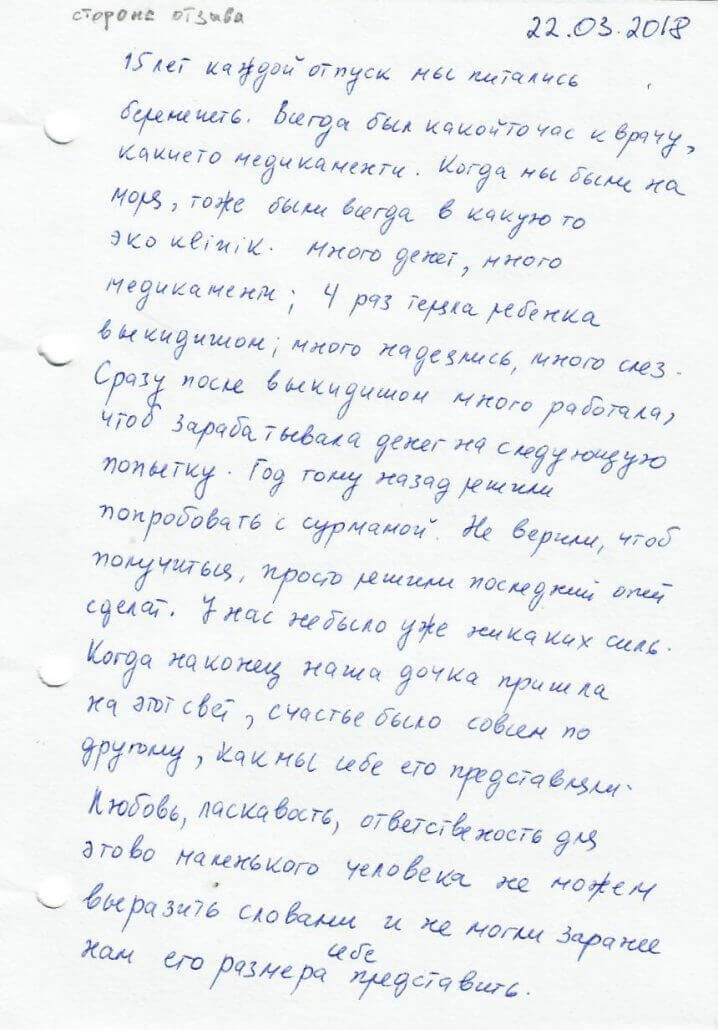 сторона отзыва
22.03.2018
15 лет каждой отпуск мы питались
беременеть. Всегда был какойто час к врачу,
какието медикаменти. Когда мы были на
моря, тоже были всегда в какую то
эко клінік. много денег, много
медикаменти; 4 раз теряла ребенка
выкидишом; много надеялись, много слез.
Сразу после выкидишом много работала,
чтоб зарабатывала денег на следующую
попытку. Год тому назад решили
попробовать с сурмамой. Не верили, чтоб
получиться, просто решили последний опей
сделат. У нас небыло уже никаких силь.
Когда наконец наша дочка пришла
на этот свет, счастье было совсем по
другому, как мы себе его представляли.
Любовь, ласкавость, ответствежость для
этово маленького человека не можем
выразить словами и не могли заранее
нам его размера себе представить.